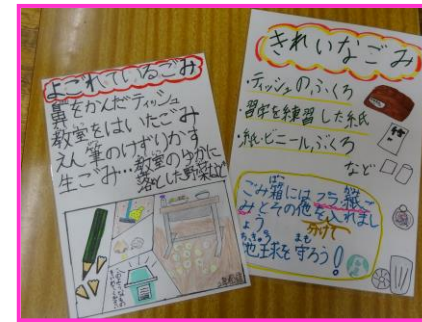 よごれているごみ
鼻をかんだティッシュ
教室をはいたごみ
えん筆のけずりかす
生ごみ…教室のゆかに
落とした野菜など
きれいなごみ
・ティッシュのふくろ
・習字を練習した紙
・紙・ビニールぶくろ
など
ごみ箱にはプラ、紙ご
みとその他を分けて入れまし
ょう。
地球を守ろう!